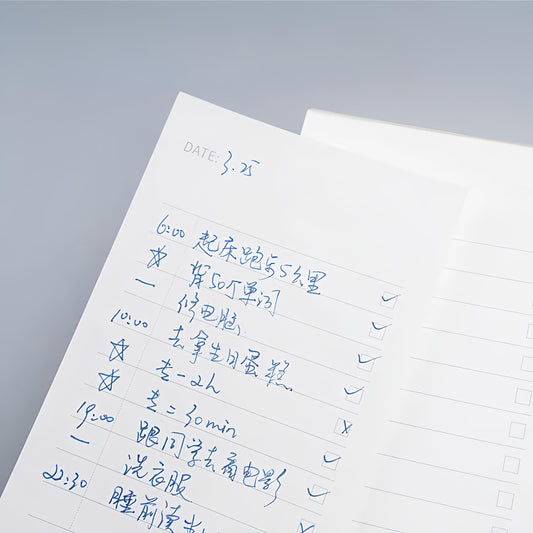 DATE: 3.25
6:00 起床跑步5公里
☆ 背50个单词
— 修电脑
10:00 去拿生日蛋糕
☆ 走一2h
☆ 走二30min
19:00 跟同学去看电影
— 洗衣服
22:30 睡前读